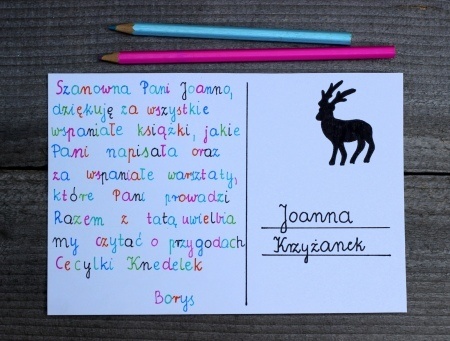 Szanowna Pani Joanno,
dziękuję za wszystkie
wspaniałe książki, jakie
Pani napisała oraz
za wspaniałe warsztaty,
które Pani prowadzi
Razem z tatą uwielbia
my czytać o przygodach
Cecylki Knedelek
Borys
Joanna
Krzyżanek